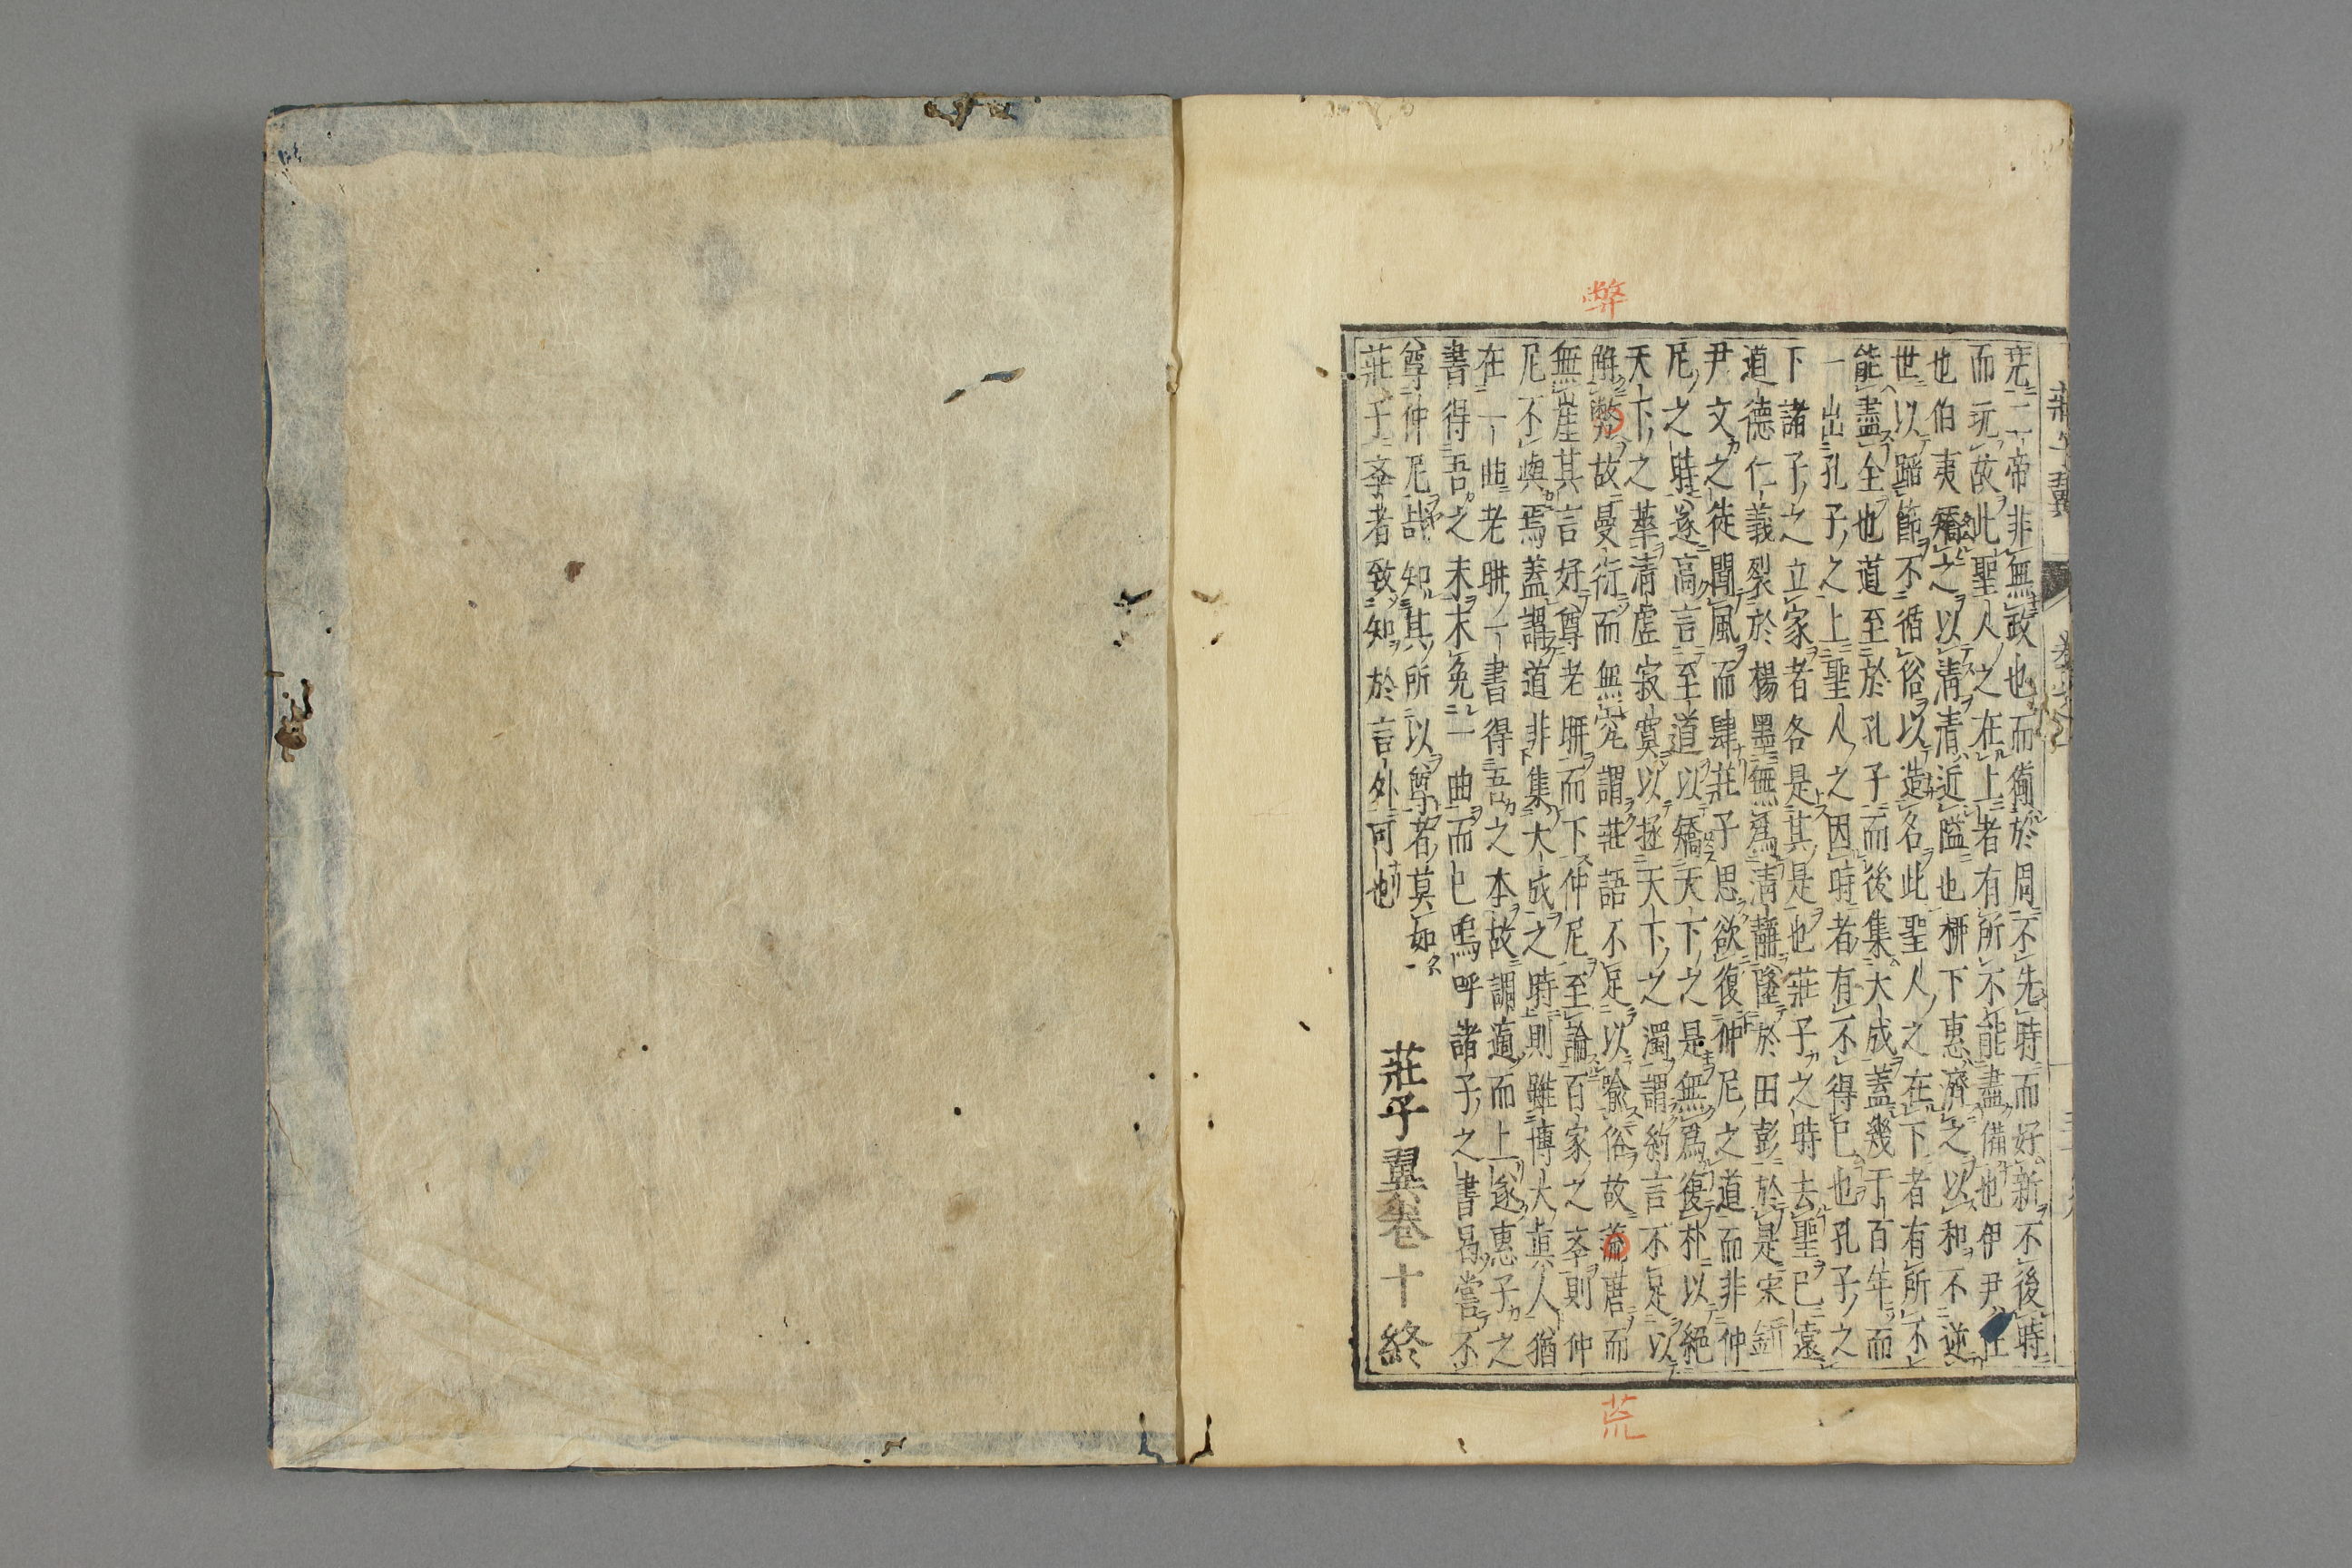 弊
尭二帝非無政也而備於周不先時而好新不後時
而玩故此聖人之在上者有所不能盡備也伊尹任
也伯夷矯之以清清近隘也栁下惠濟之以和不逆
世以蹈節不循俗以造名此聖人之在下者有所不
能盡全也道至於孔子而後集大成蓋幾千百年而
一出孔子之上聖人之因時者有不得已也孔子之
下諸子之立家者各是其是也莊子之時去聖已遠
道德仁義裂於楊墨無爲清静隆於田彭於是宋鈃
尹文之徒聞風而肆莊子思欲復仲尼之道而非仲
尼之時遂高言至道以矯天下之是無爲復朴以絕
天下之華清虛寂寞以拯天下之濁謂約言不足以
解弊故曼衍而無窮謂莊語不足以喻俗故荒唐而
無崖其言好尊老耼而下仲尼至論百家之斈則仲
尼不與焉蓋謂道非集大成之時則雖博大真人猶
在一曲老耼一書得吾之本故調適而上遂惠子之
書得吾之末末免一曲而已嗚呼諸子之書曷嘗不
尊仲尼哉知其所以尊者莫如
莊子斈者致知於言外可也
莊子翼卷十終
荒